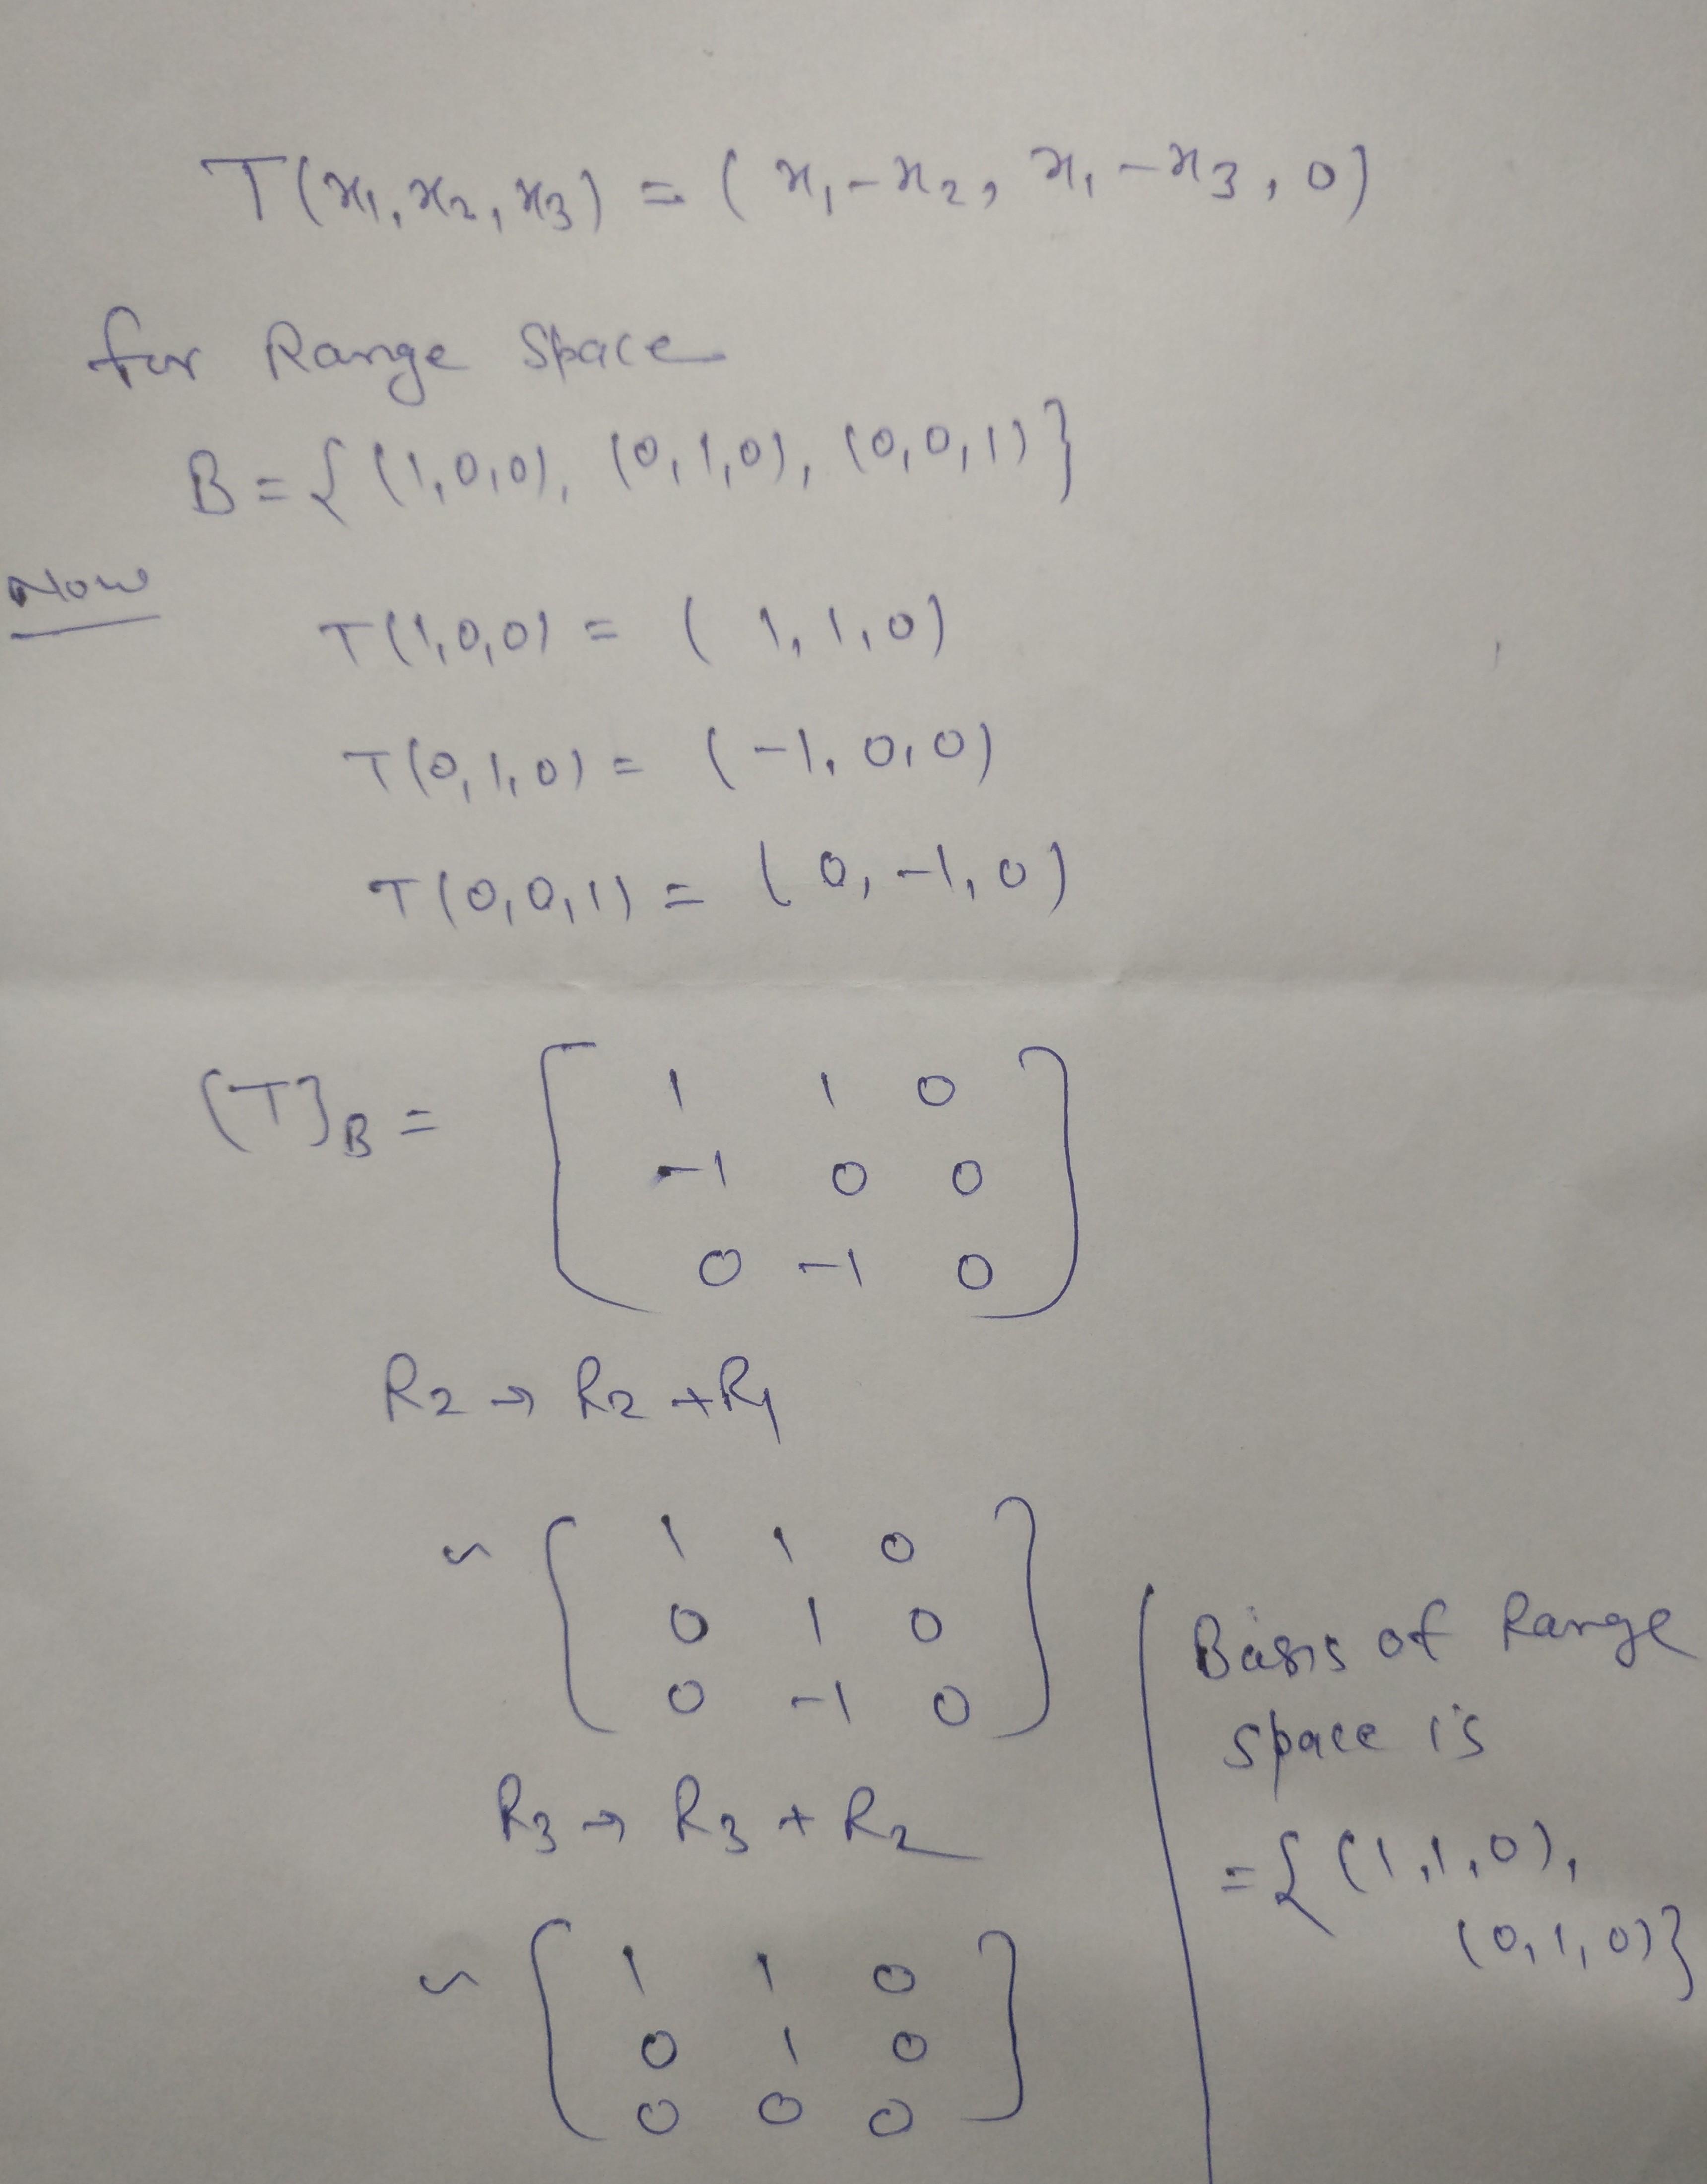 T(x₁, x₂, x₃) = (x₁-x₂, x₁-x₃, 0)
for Range Space
B = {(1,0,0), (0,1,0), (0,0,1)}
Now
T(1,0,0) = (1,1,0)
T(0,1,0) = (-1,0,0)
T(0,0,1) = (0,-1,0)
[T]B =
1 1 0
-1 0 0
0 -1 0
R2 → R2 + R1
~
1 1 0
0 1 0
0 -1 0
R3 → R3 + R2
~
1 1 0
0 1 0
0 0 0
Basis of Range
space is
= {(1,1,0),
(0,1,0)}